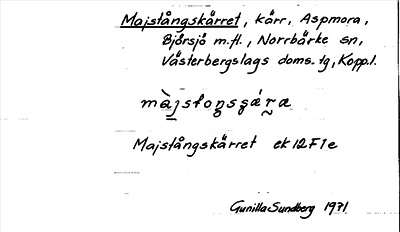 Majstångskärret, kärr, Aspmora,
Björsjö m.fl., Norrbärke sn,
Västerbergslags doms. tg, Kopp.l.
Majstångskärret ek 12F1e
Gunilla Sundberg 1971